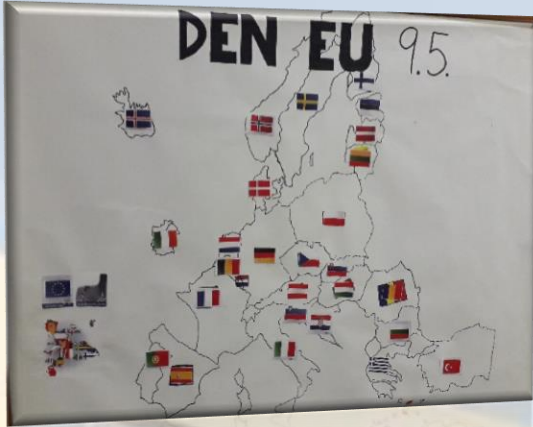 DEN EU 9.5.